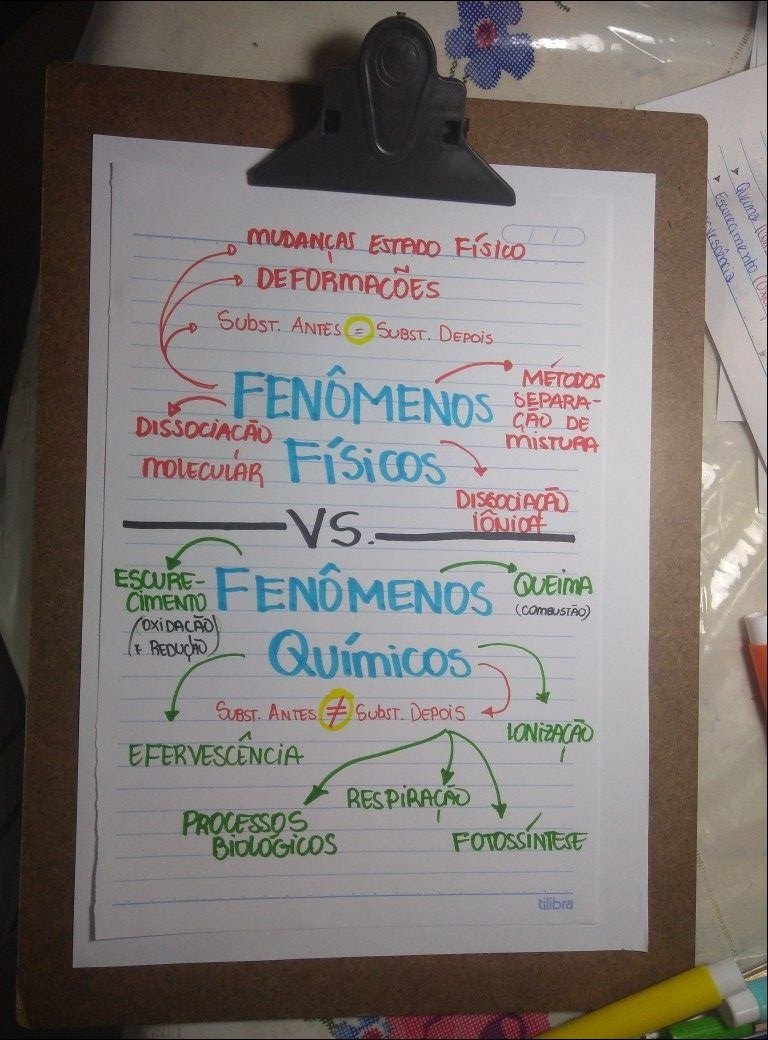 MUDANÇAS ESTADO FÍSICO
DEFORMAÇÕES
SUBST. ANTES = SUBST. DEPOIS
FENÔMENOS
FÍSICOS
MÉTODOS
SEPARA-
ÇÃO DE
MISTURA
DISSOCIAÇÃO
MOLECULAR
DISSOCIAÇÃO
IÔNICA
VS.
ESCURE-
CIMENTO
(OXIDAÇÃO
E REDUÇÃO)
FENÔMENOS
QUÍMICOS
QUEIMA
(COMBUSTÃO)
SUBST. ANTES ≠ SUBST. DEPOIS
IONIZAÇÃO
EFERVESCÊNCIA
RESPIRAÇÃO
PROCESSOS
BIOLÓGICOS
FOTOSSÍNTESE
tilibra
Queima
Escurecimento